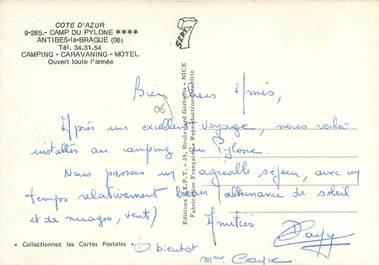 COTE D'AZUR
9-285.- CAMP DU PYLONE ****
ANTIBES-la-BRAGUE (06)
Tél. 34.31.54
CAMPING - CARAVANING - MOTEL
Ouvert toute l'année
SEPT
Bien chers Amis,
06
Après un excellent voyage, nous voilà
installés au camping du Pylone
Nous passons un agréable séjour, avec un
temps relativement beau (alternance de soleil
et de nuages, vent)
Amitiés
A bientôt
Mme
Editions S.E.P.T. - 35, Boulevard Gorbella - NICE
Fabrication Française - Reproduction interdite
* Collectionnez les Cartes Postales *